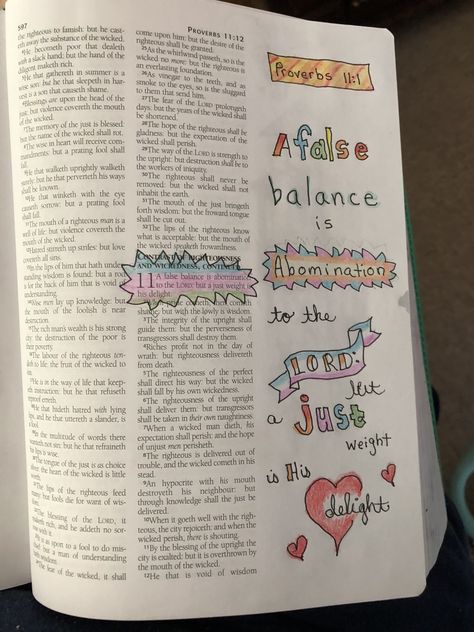 597
PROVERBS 11:12
the righteous to famish: but he cast-
eth away the substance of the wicked.
He becometh poor that dealeth
with a slack hand: but the hand of the
diligent maketh rich.
He that gathereth in summer is a
wise son: but he that sleepeth in har-
vest is a son that causeth shame.
Blessings are upon the head of the
just: but violence covereth the mouth
of the wicked.
The memory of the just is blessed:
but the name of the wicked shall rot.
The wise in heart will receive com-
mandments: but a prating fool shall
fall.
He that walketh uprightly walketh
surely: but he that perverteth his ways
shall be known.
He that winketh with the eye
causeth sorrow: but a prating fool
shall fall.
The mouth of a righteous man is a
well of life: but violence covereth the
mouth of the wicked.
Hatred stirreth up strifes: but love
covereth all sins.
In the lips of him that hath under-
standing wisdom is found: but a rod
for the back of him that is void of
understanding.
Wise men lay up knowledge: but
the mouth of the foolish is near
destruction.
The rich man's wealth is his strong
city: the destruction of the poor is
their poverty.
The labour of the righteous ten-
deth to life: the fruit of the wicked to
sin.
He is in the way of life that keep-
eth instruction: but he that refuseth
reproof erreth.
He that hideth hatred with lying
lips, and he that uttereth a slander, is
a fool.
In the multitude of words there
wanteth not sin: but he that refraineth
his lips is wise.
The tongue of the just is as choice
silver: the heart of the wicked is little
worth.
The lips of the righteous feed
many: but fools die for want of wis-
dom.
The blessing of the LORD, it
maketh rich, and he addeth no sor-
row with it.
It is as sport to a fool to do mis-
chief: but a man of understanding
hath wisdom.
The fear of the wicked, it shall
come upon him: but the desire of the
righteous shall be granted.
25As the whirlwind passeth, so is the
wicked no more: but the righteous is
an everlasting foundation.
26As vinegar to the teeth, and as
smoke to the eyes, so is the sluggard
to them that send him.
27The fear of the LORD prolongeth
days: but the years of the wicked shall
be shortened.
28The hope of the righteous shall be
gladness: but the expectation of the
wicked shall perish.
29The way of the LORD is strength to
the upright: but destruction shall be to
the workers of iniquity.
30The righteous shall never be
removed: but the wicked shall not
inhabit the earth.
31The mouth of the just bringeth
forth wisdom: but the froward tongue
shall be cut out.
32The lips of the righteous know
what is acceptable: but the mouth of
the wicked speaketh frowardness.
AND WICKEDNESS, CONTINUED
11 A false balance is abomination
to the LORD: but a just weight is
his delight.
shame: but with the lowly is wisdom.
3The integrity of the upright shall
guide them: but the perverseness of
transgressors shall destroy them.
4Riches profit not in the day of
wrath: but righteousness delivereth
from death.
5The righteousness of the perfect
shall direct his way: but the wicked
shall fall by his own wickedness.
6The righteousness of the upright
shall deliver them: but transgressors
shall be taken in their own naughtiness.
7When a wicked man dieth, his
expectation shall perish: and the hope
of unjust men perisheth.
8The righteous is delivered out of
trouble, and the wicked cometh in his
stead.
9An hypocrite with his mouth
destroyeth his neighbour: but
through knowledge shall the just be
delivered.
10When it goeth well with the righ-
teous, the city rejoiceth: and when the
wicked perish, there is shouting.
11By the blessing of the upright the
city is exalted: but it is overthrown by
the mouth of the wicked.
12He that is void of wisdom
Proverbs 11:1
A false
balance
is
Abomination
to the
LORD:
but
a just
weight
is His
delight